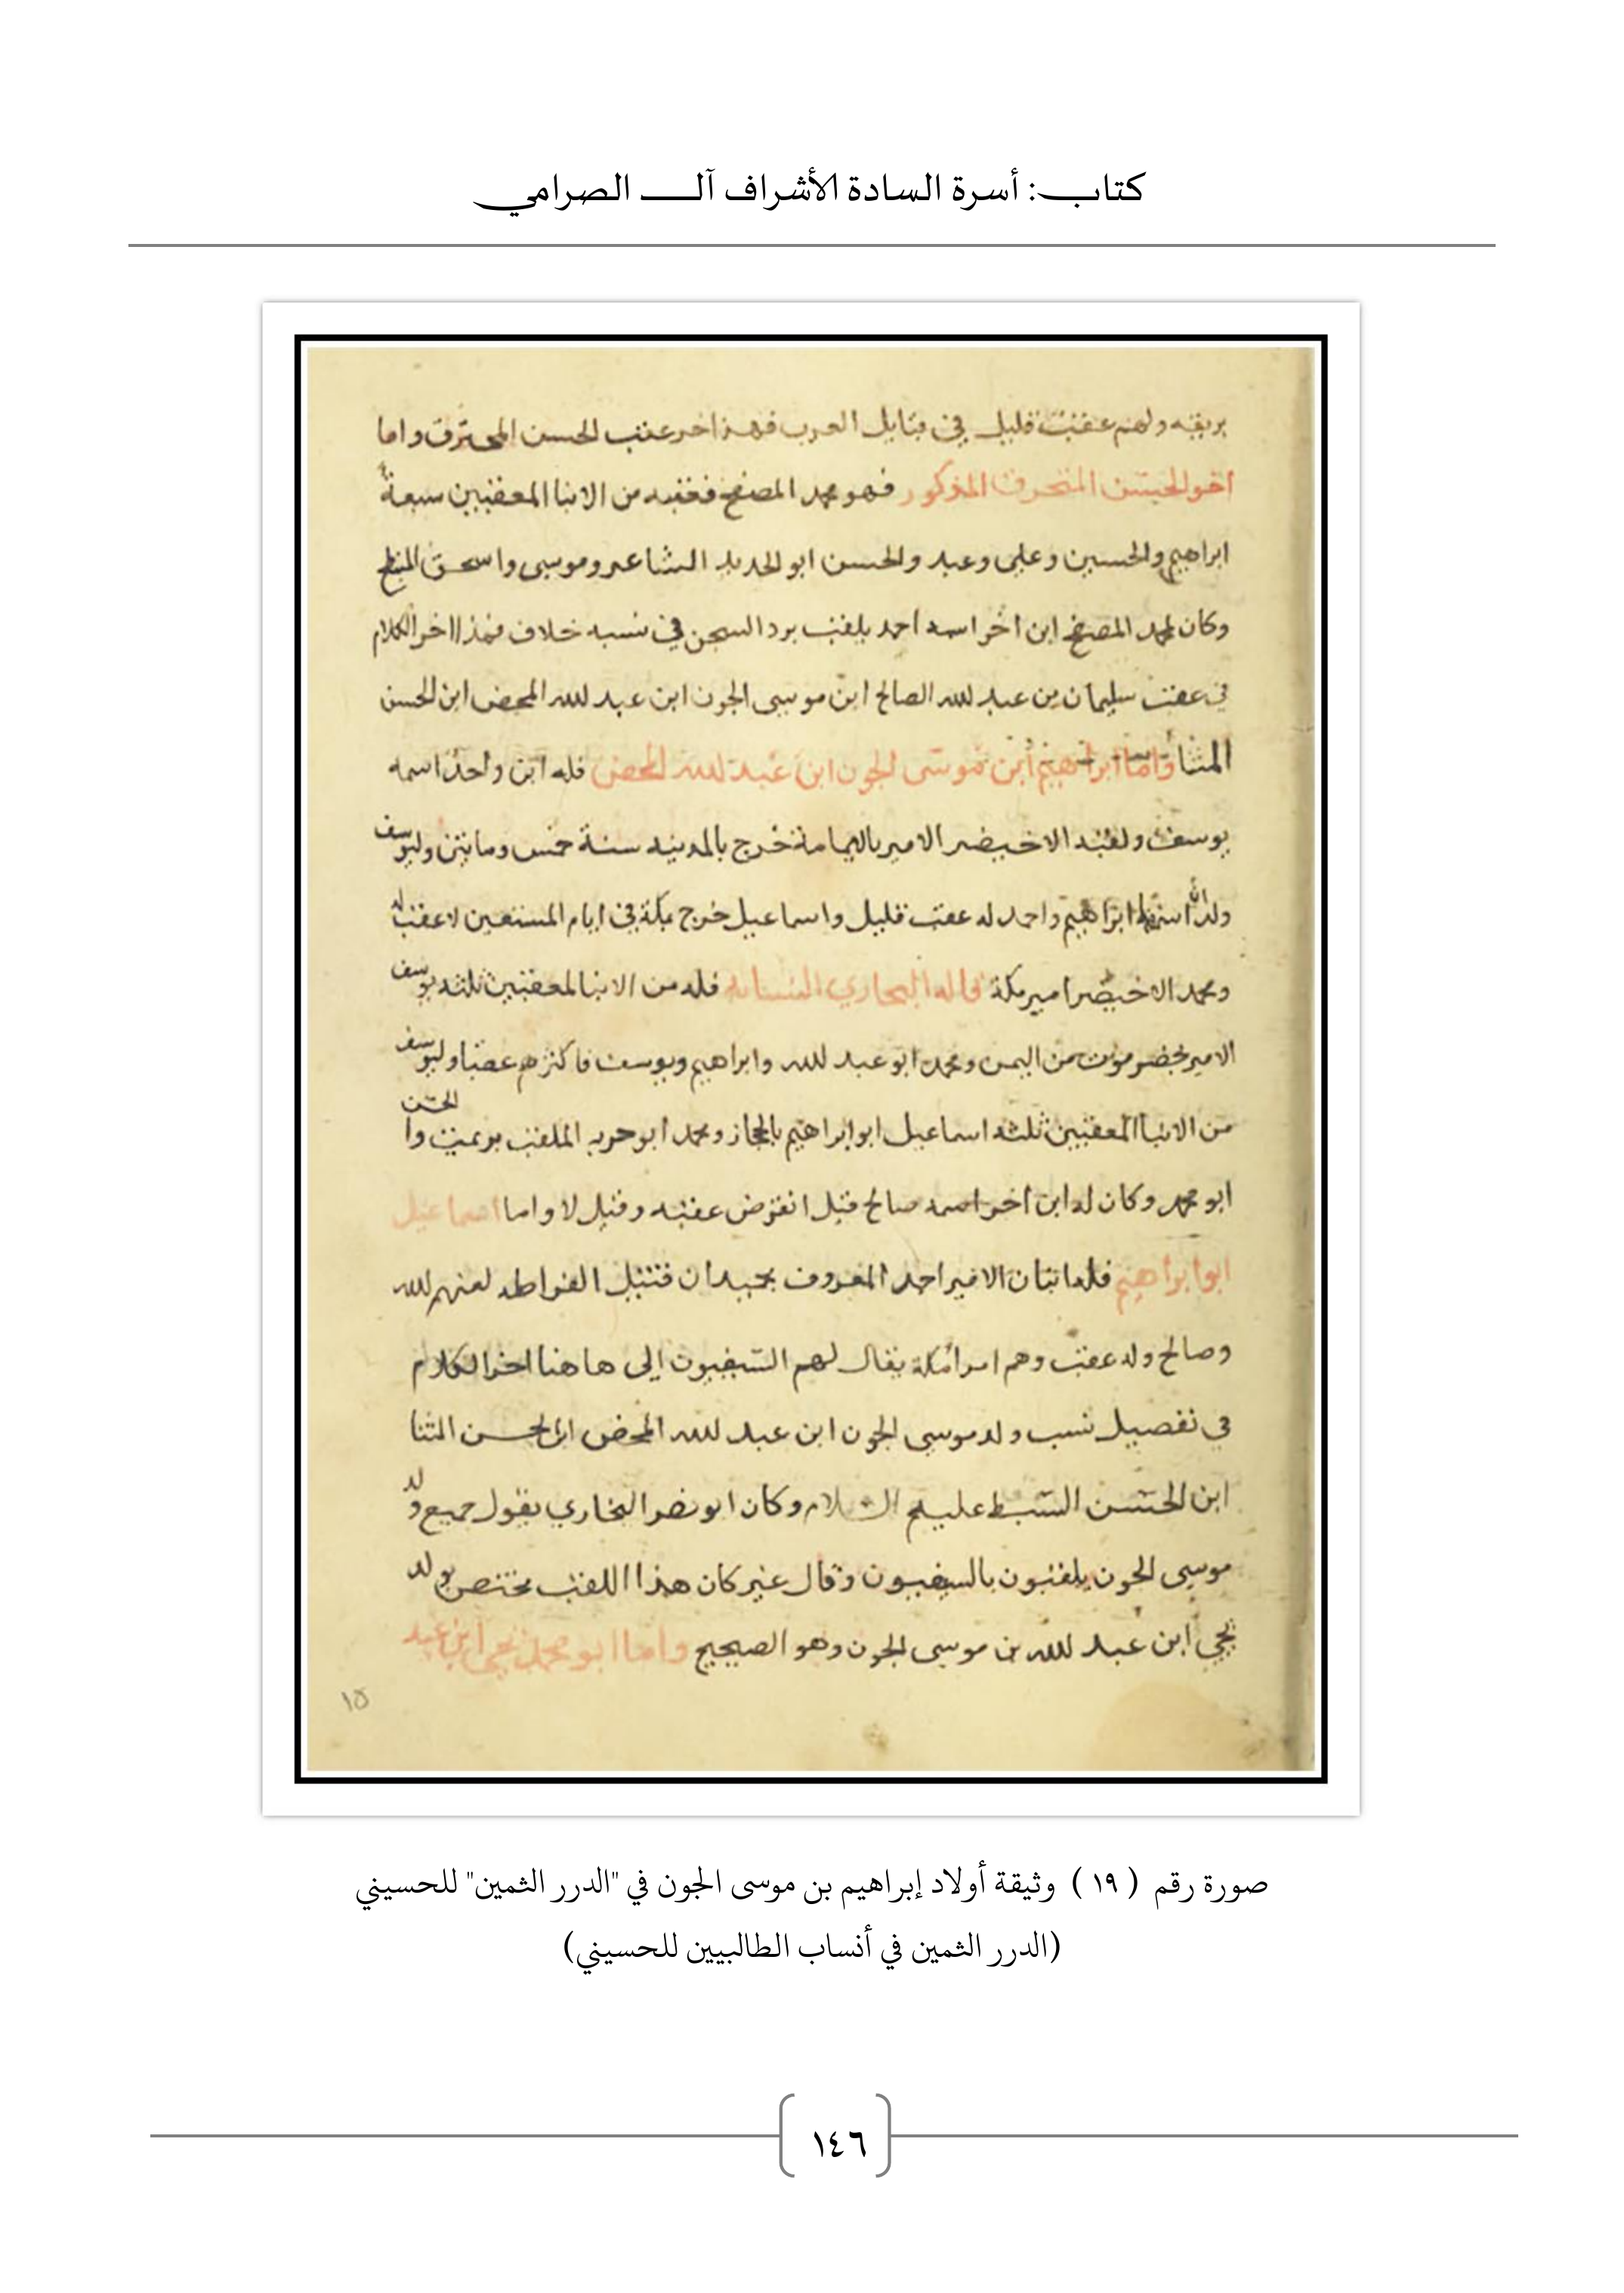 كتاب: أسرة السادة الأشراف آل الصرامي
بريقه ولهم عقب قليل في قبايل العرب فهذا اخر عقب الحسن المحترق واما
اخو الحسن المحترق المذكور فهو محمد المصفح فعقبه من الابنا المعقبين سبعة
ابراهيم والحسين وعلي وعبد والحسن ابو الحديد الشاعر وموسى واسحق
وكان لمحمد المصفح ابن اخر اسمه احمد يلقب برد السجن في نسبه خلاف فهذا اخر الكلام
في عقب سليمان بن عبد الله الصالح ابن موسى الجون ابن عبد الله المحض ابن الحسن
المثنا واما ابراهيم ابن موسى الجون ابن عبد الله المحض فله ابن واحد اسمه
يوسف ولقبه الاخيضر الامير باليمامة خرج بالمدينه سنة خمس ومايتين وليوسف
ولد اسمه ابراهيم واحمد له عقب قليل واسماعيل خرج بمكة في ايام المستعين لا عقب له
ومحمد الاخيضر امير مكة قاله البخاري النسابه فله من الابنا المعقبين ثلثه يوسف
الامير بحضرموت من اليمن ومحمد ابو عبد الله وابراهيم ويوسف فاكثرهم عقبا وليوسف
من الابنا المعقبين ثلثه اسماعيل ابو ابراهيم بالحجاز ومحمد ابو حربه الملقب والحسن
ابو محمد وكان له ابن اخر اسمه صالح قيل انقرض عقبه وقيل لا واما اسماعيل
ابو ابراهيم فله ابنان الامير احمد المعروف بحميدان قتيل القرامطه لعنهم الله
وصالح وله عقب وهم امرا مكة يقال لهم السيفيون الى هاهنا اخر الكلام
في تفصيل نسب ولد موسى الجون ابن عبد الله المحض ابن الحسن المثنا
ابن الحسن السبط عليهم السلام وكان ابو نصر البخاري يقول جميع ولد
موسى الجون يلقبون بالسيفيون وقال غير كان هذا اللقب مختص بولد
يحي ابن عبد الله بن موسى الجون وهو الصحيح واما ابو محمد يحي ابن عبد
١٥
صورة رقم ( ١٩ ) وثيقة أولاد إبراهيم بن موسى الجون في "الدرر الثمين" للحسيني
(الدرر الثمين في أنساب الطالبيين للحسيني)
١٤٦